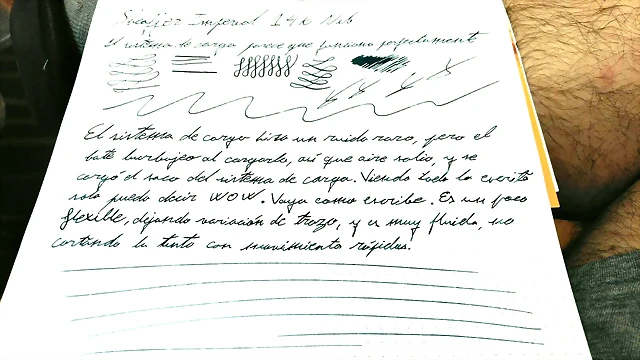 Sheaffer Imperial 14k Nib
El sistema de carga parece que funciona perfectamente
El sistema de carga hizo un ruido raro, pero el
bote burbujeo al cargarlo, así que aire salio, y se
cargó el saco del sistema de carga. Viendo todo lo escrito
solo puedo decir WOW. Vaya como escribe. Es un poco
flexible, dejando variación de trazo, y es muy fluida, no
cortando la tinta con movimientos rápidos.